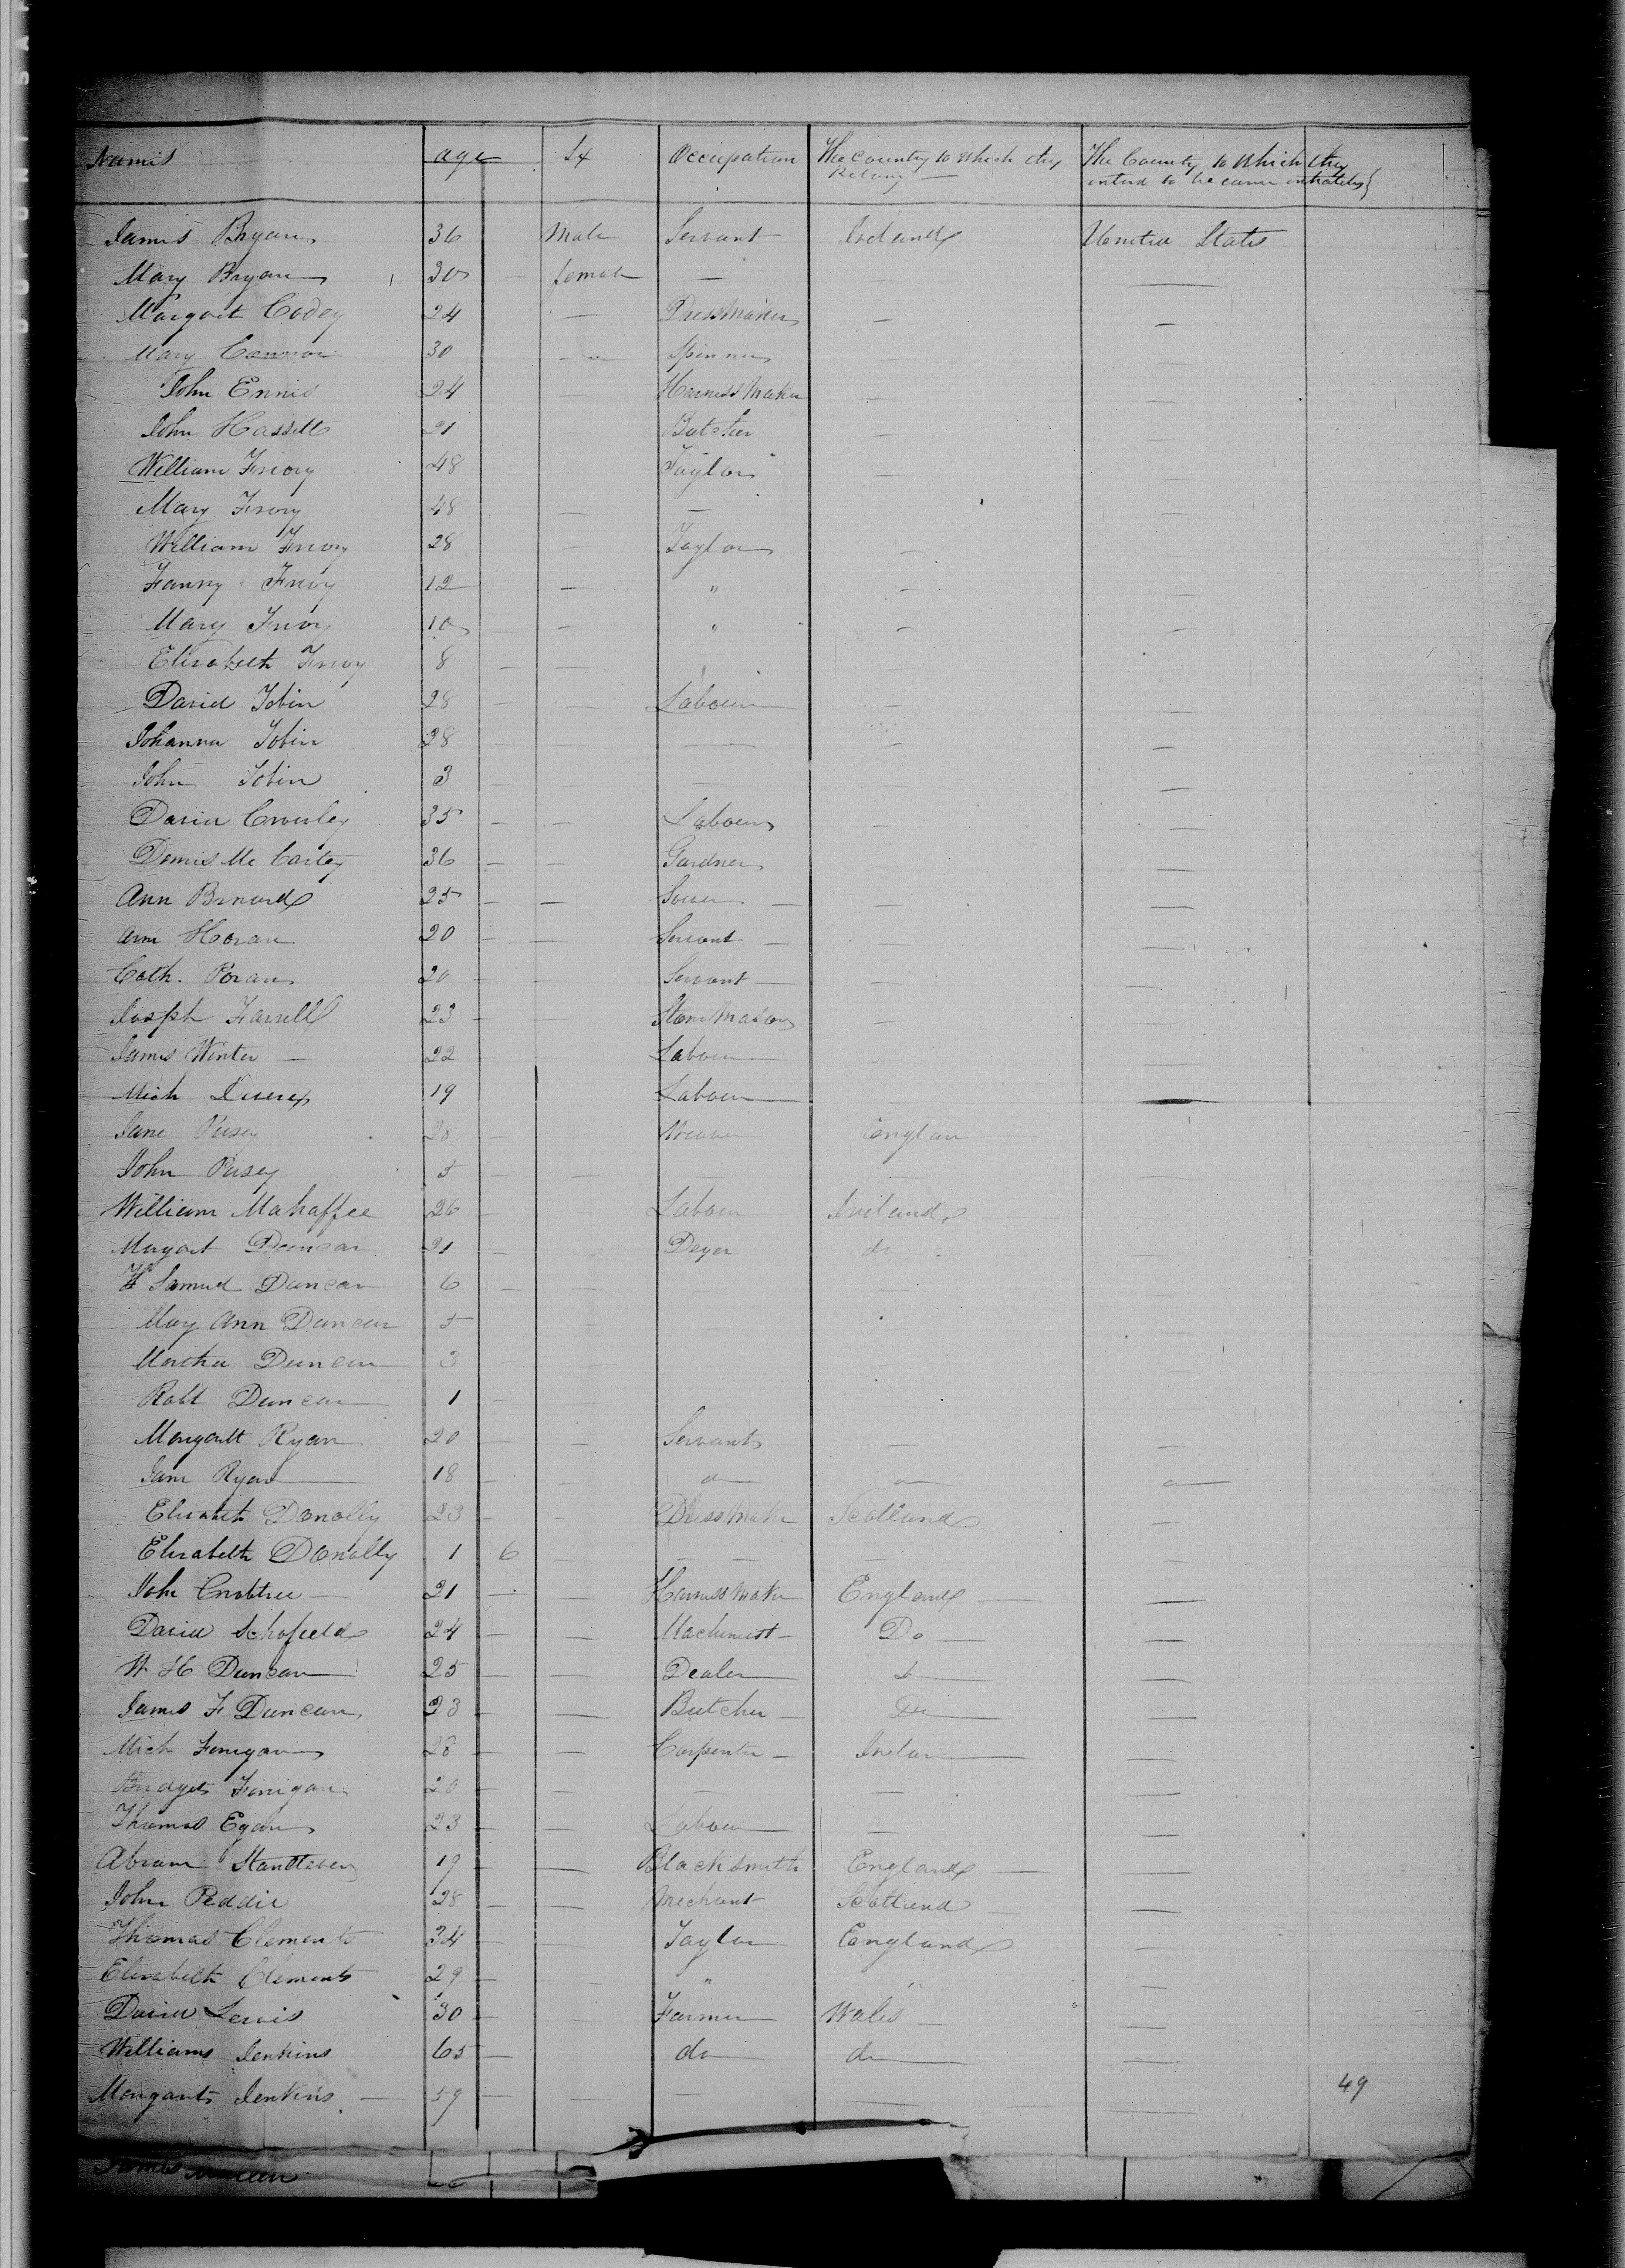 Names age Sex Occupation The Country to which they Belong The County to Which they intend to be come
James Bryan 36 Male Servant Ireland United States
Mary Bryan 30 female — —
Margaret Codey 24 — Dressmaker — —
Mary Connor 30 — Spinner —
John Ennis 24 — Harness Maker — —
John Hassett 21 Butcher — —
William Frivoy 48 Taylor — —
Mary Frivoy 48 — — —
William Frivoy 28 — Taylor — —
Fanny Frivoy 12 — " — —
Mary Frivoy 10 — " — —
Elizabeth Frivoy 8 — —
David Tobin 28 — — Labour — —
Johanna Tobin 28 — — — —
John Tobin 3 — — —
David Crowley 35 — — Labour — —
Dennis Mc Cartey 36 — — Gardner —
Ann Brnard 25 — — — —
Ann Horan 20 — — Servant — — —
Cath. Horan 20 — Servant — — —
Joseph Farrell 23 — — Stone Mason — —
James Winter — 22 — Labour —
Mich 19 Labour — —
Jane Pusey 28 — Weaver Englan
John Pusey 5 — — — —
William Mahaffee 26 — Labour Ireland
Margart Duncan 21 — Deyer do
Samuel Duncan 6 — — — —
Mary Ann Duncan 5 — —
Martha Duncan 3 —
Robt Duncan 1 — —
Margarett Ryan 20 — — Servant — —
Jane Ryan 18 — — do do do
Elizabeth Donolly 23 — — Dressmaker Scotland —
Elizabeth Donolly 1 6 — — — —
John Crabtree 21 — — Harnessmaker England —
David Schofield 24 — — Machinist — Do —
W H Duncan 25 — — Dealer Do —
James F Duncan 23 — — Butcher — Do —
Mich Fenigan 28 — — Carpenter — Irelan —
Bridget Fenigan 20 — — — — —
Thomas Egan 23 — — Labour — —
Abram Standteven 19 — — Blacksmith England —
John Peddie 28 — — Mechant Scotland —
Thomas Clements 34 — Taylor England —
Elizabeth Clements 29 — — " " —
David Lewis 30 — Farmer Wales — —
Williams Jenkins 65 — do do —
Margarett Jenkins — 59 — — — — —
49
James